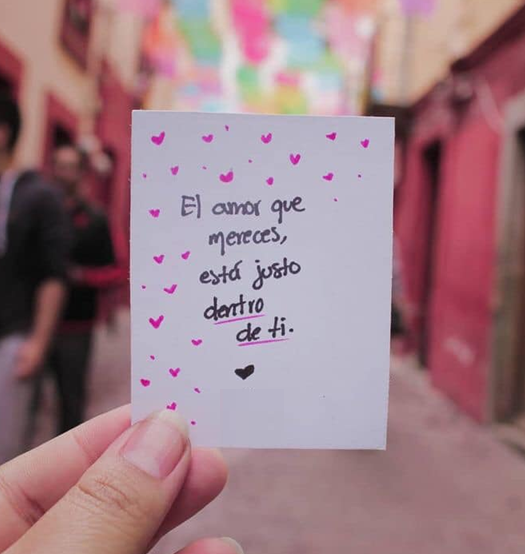 El amor que
mereces,
está justo
dentro
de ti.